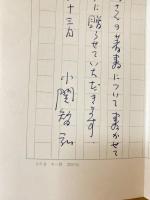 さんの著書について書かせて
に贈らせていただきます。
十三日
小関智弘